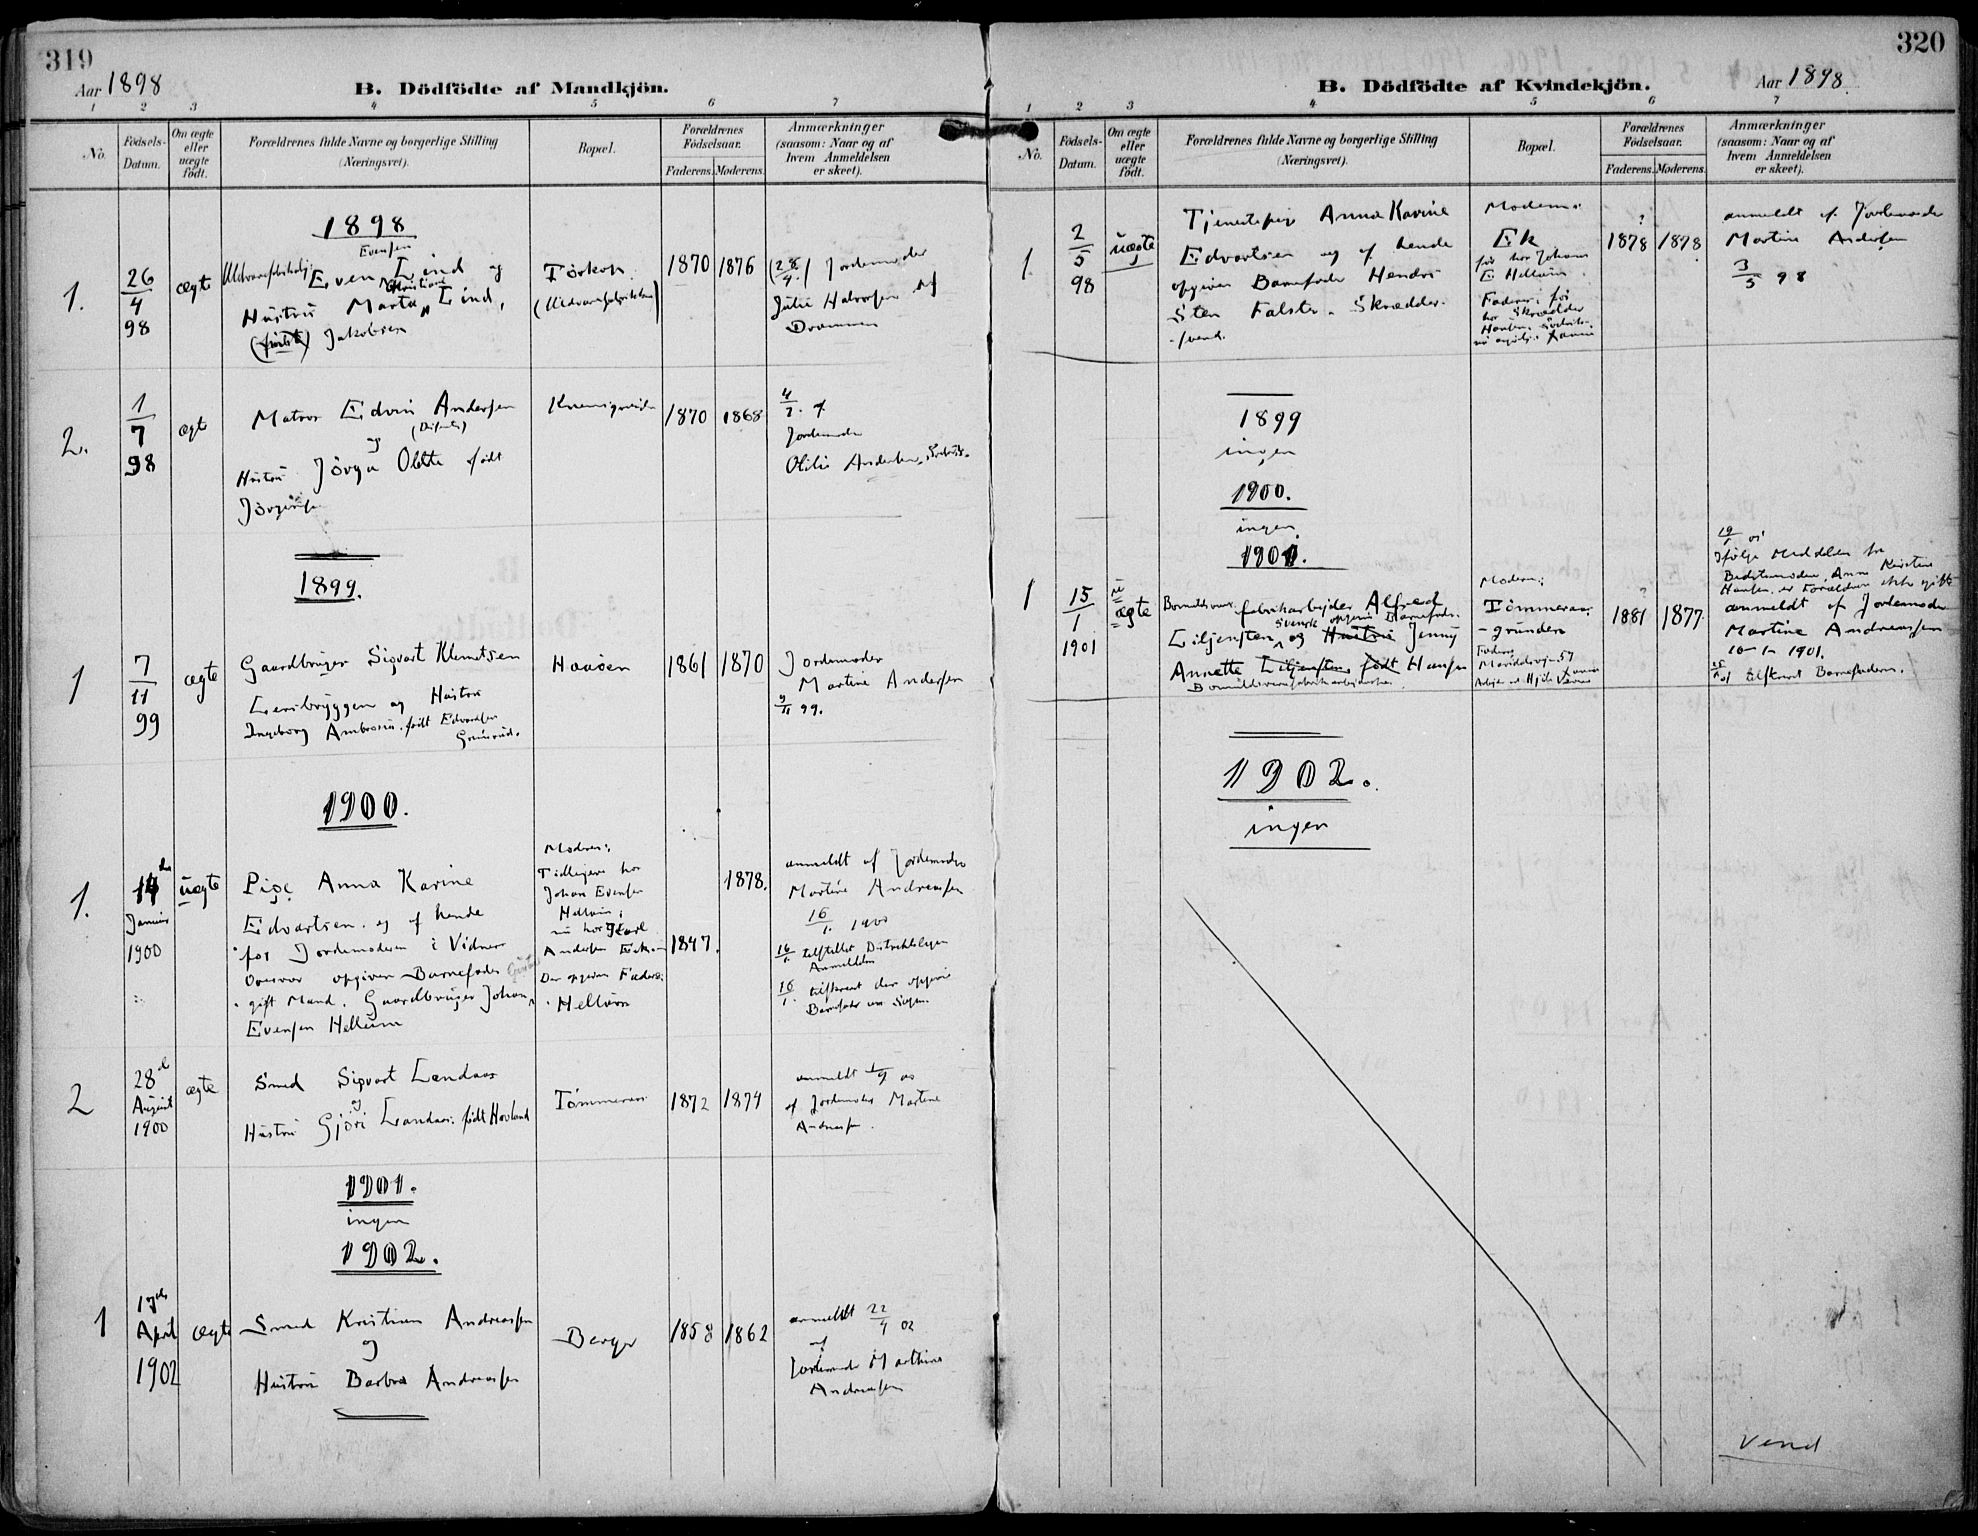 319
Aar 1898
B. Dödfödte af Mandkjön.
1 2 3 4 5 6 7
No.
Födsels-
Datum.
Om ægte
eller
uægte
født.
Forældrenes fulde Navne og borgerlige Stilling
(Næringsvei).
Bopæl.
Forældrenes
Födselsaar.
Faderens. Moderens.
Anmærkninger
(saasom: Naar og af
hvem Anmeldelsen
er skeet).
1898
1.
26
4
98
ægte
Evensen
Even Lind og
Kristiane
Hustru Marta Lind,
(født) Jakobsen
Törkop
1870 1876
(28/4) Jordemoder
Julie Halvorsen af
Drammen
2.
1
7
98
ægte
Matros Edvin Andersen
og
Hustru Jörga Olette født
Jörgensen
1870 1868
4/7 af
Jordemoder
Olilie Andersen
1899.
1
7
11
99
ægte
Gaardbruger Sigvart Klemetsen
Lersbryggen og Hustru
Ingeborg Ambrosia født Edvardsen
Grimsrud.
Haasen
1861 1870
Jordemoder
Martine Andersen
9/11 99.
1900.
1.
14de
Januar
1900
uægte
Pige Anna Karine
Edvartsen og af hende
for Jordemoderen i Vidner
Overvær opgiven Barnefader
gift Mand, Gaardbruger Johan
Evensen Hellum
Moderen:
Tidligere hos
Johan Evensen
Hellum;
nu hos Karl
Andersen Ek
Den opgivne Faders:
Hellum
1847. 1878.
anmeldt af Jordemoder
Martine Andreassen
16/1 1900
16/1 tilstillet Distriktslægen
Anmeldelse
16/1 tilskrevet den opgivne
Barnefader om Sagen.
2
28de
August
1900
ægte
Smed Sigvart Landaas
og
Hustru Gjöri Landaas født Hovland
Tömmeraas
1872 1874
anmeldt 1/9 00
af Jordemoder Martine
Andreassen.
1901.
ingen
1902.
1
17de
April
1902
ægte
Smed Kristian Andreassen
og
Hustru Barbra Andreassen
Berger
1858 1862
anmeldt 22/4 02
af
Jordemoder Marthine
Andreassen
320
Aar 1898
B. Dödfödte af Kvindekjön.
1 2 3 4 5 6 7
No.
Födsels-
Datum.
Om ægte
eller
uægte
födt.
Forældrenes fulde Navne og borgerlige Stilling
(Næringsvei).
Bopæl.
Forældrenes
Födselsaar.
Faderens. Moderens.
Anmærkninger
(saasom: Naar og af
hvem Anmeldelsen
er skeet).
1.
2
5
98
uægte
Tjenestepige Anna Karine
Edvartsen og af hende
opgiven Barnefader Hendri
Sten Falster. Skrædder-
svend.
Moderen:
Ek
før hos Johan
E Hellum.
Faderen: før
hos Skrædder
Hansen
?
1878 1878
anmeldt af Jordemoder
Martine Andersen
3/5 98
1899
ingen
1900.
ingen
1901.
1
15
1
1901
u
ægte
Bomuldsvare fabrikarbejder Alfred
svensk opgiven Barnefader
Liljensten, og Hustru Jenny
Annette Liljensten født Hansen
Bomuldsvarefabrikarbejderske.
Moderen:
Tömmeraas
-grunden
Faderen
Mariddalsvejen 57
1881 1877.
19/1 01
Ifølge Meddelelse fra
Bedstemoderen, Anne Kirstine
Hansen, er Forældrene ikke gifte
anmeldt af Jordemoder
Martine Andreassen
16-1-1901.
tilskrevet Barnefaderen.
1902.
ingen
Vend